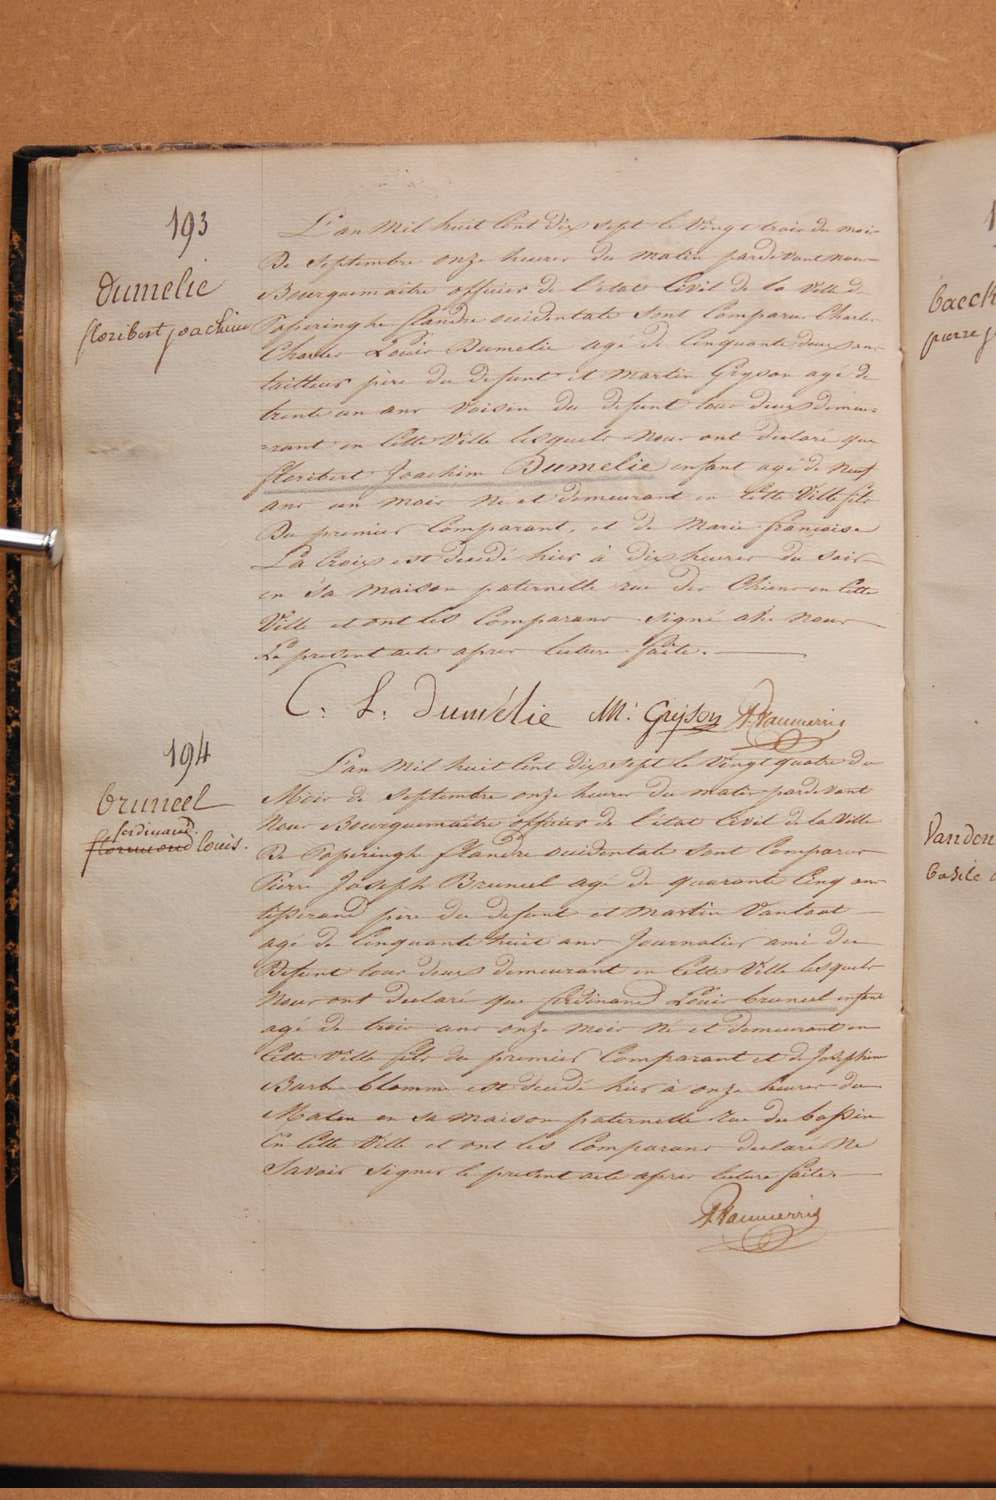 193
Dumelie
floribert joachim
L'an Mil huit Cent dix sept le Vingt trois du mois
De Septembre onze heures du matin pardevant nous
Bourguemaitre officier de l'état Civil de la Ville de
Poperinghe flandre occidentale sont Comparus Charles
Charles Louis Dumelie agé de Cinquante deux ans
tailleur père du defunt et Martin Gryson agé de
trente un ans Voisin du defunt tous deux demeu-
-rant en Cette Ville lesquels Nous ont declaré que
floribert Joachim Dumelie enfant agé de Neuf
ans un mois Né et demeurant en Cette Ville fils
Du premier Comparant, et de Marie françoise
La Croix est decedé hier à dix heures du soir
en sa maison paternelle rue des Chiens en Cette
Ville et ont les Comparans signé avec nous
Le present acte apres lecture faite.
C. L. Dumélie M: Gryson
194
bruneel
ferdinand
florimond louis.
L'an Mil huit Cent dix sept le Vingt quatre du
Mois de Septembre onze heures du matin pardevant
Nous Bourguemaitre officier de l'état Civil de la Ville
De Poperinghe flandre occidentale sont Comparus
Pierre Joseph Bruneel agé de quarante Cinq ans
tisserand père du defunt et Martin Vantoot
agé de Cinquante huit ans Journalier ami du
Defunt tous deux demeurant en Cette Ville lesquels
Nous ont declaré que ferdinand Louis bruneel enfant
agé de trois ans onze mois né et demeurant en
Cette Ville fils du premier Comparant et de Josephine
Barbe blomme est decedé hier à onze heures du
Matin en sa maison paternelle rue du bassin
En Cette Ville et ont les Comparans declaré Ne
Savoir signer le present acte apres lecture faite.
baeck
pierre j
Vanden
basile